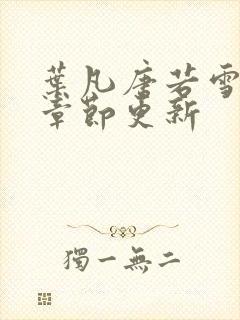 葉凡唐若雪
章節更新
獨一無二